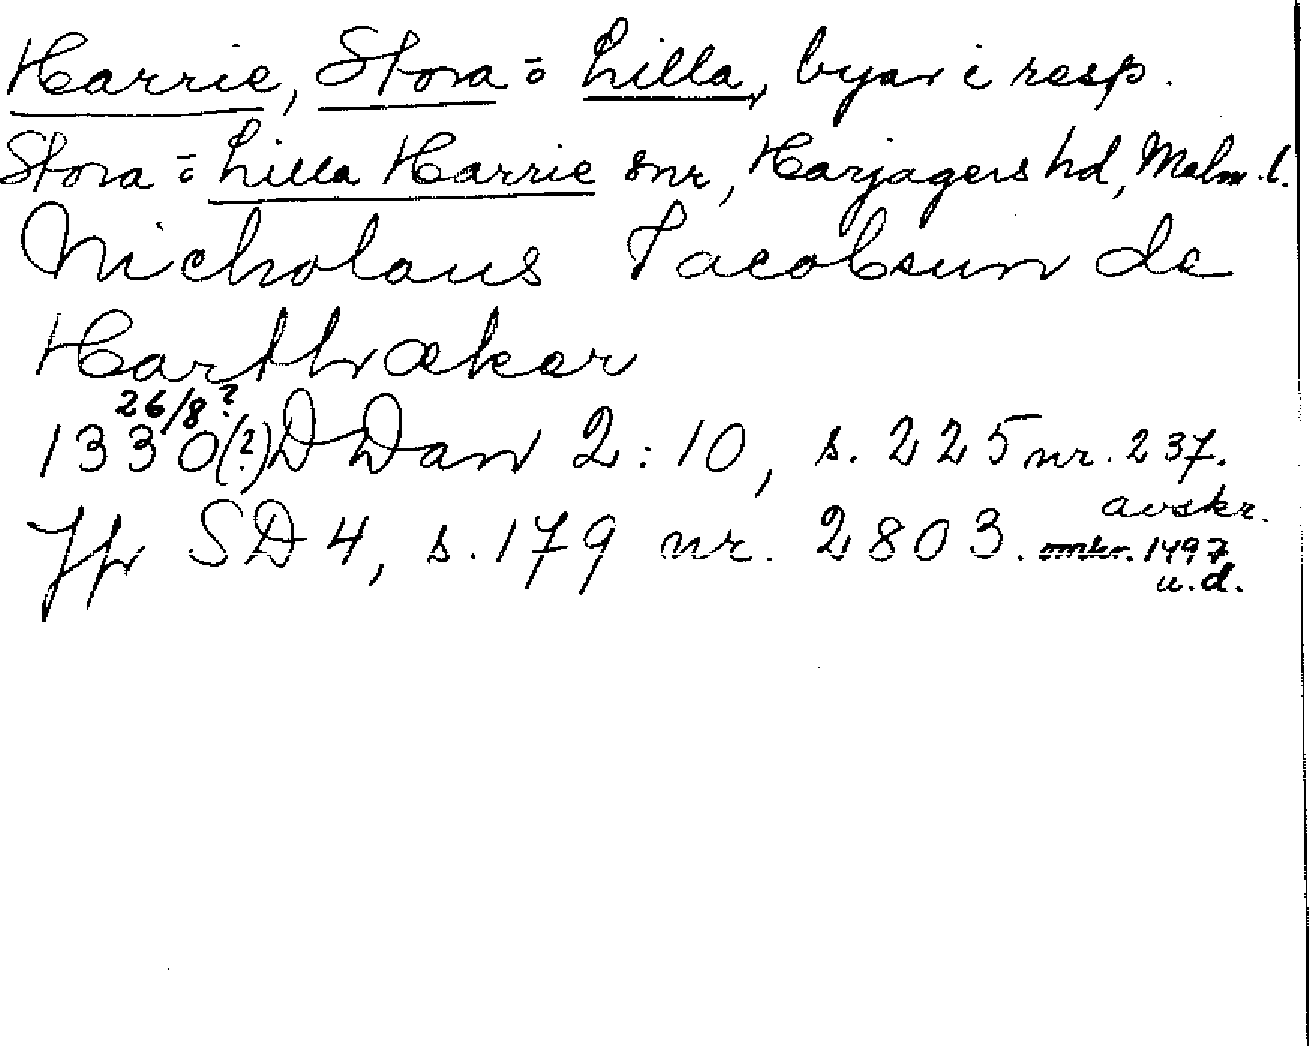 Harrie, Stora o Lilla, byar i resp.
Stora o Lilla Harrie snr, Harjagers hd, Malm.l.
Nicholaus Jacobsun de
Harthæker
26/8?
1330(?) DDan 2:10, s. 225 nr. 237.
Jfr SD 4, s. 179 nr. 2803. avskr.
1497
u.d.